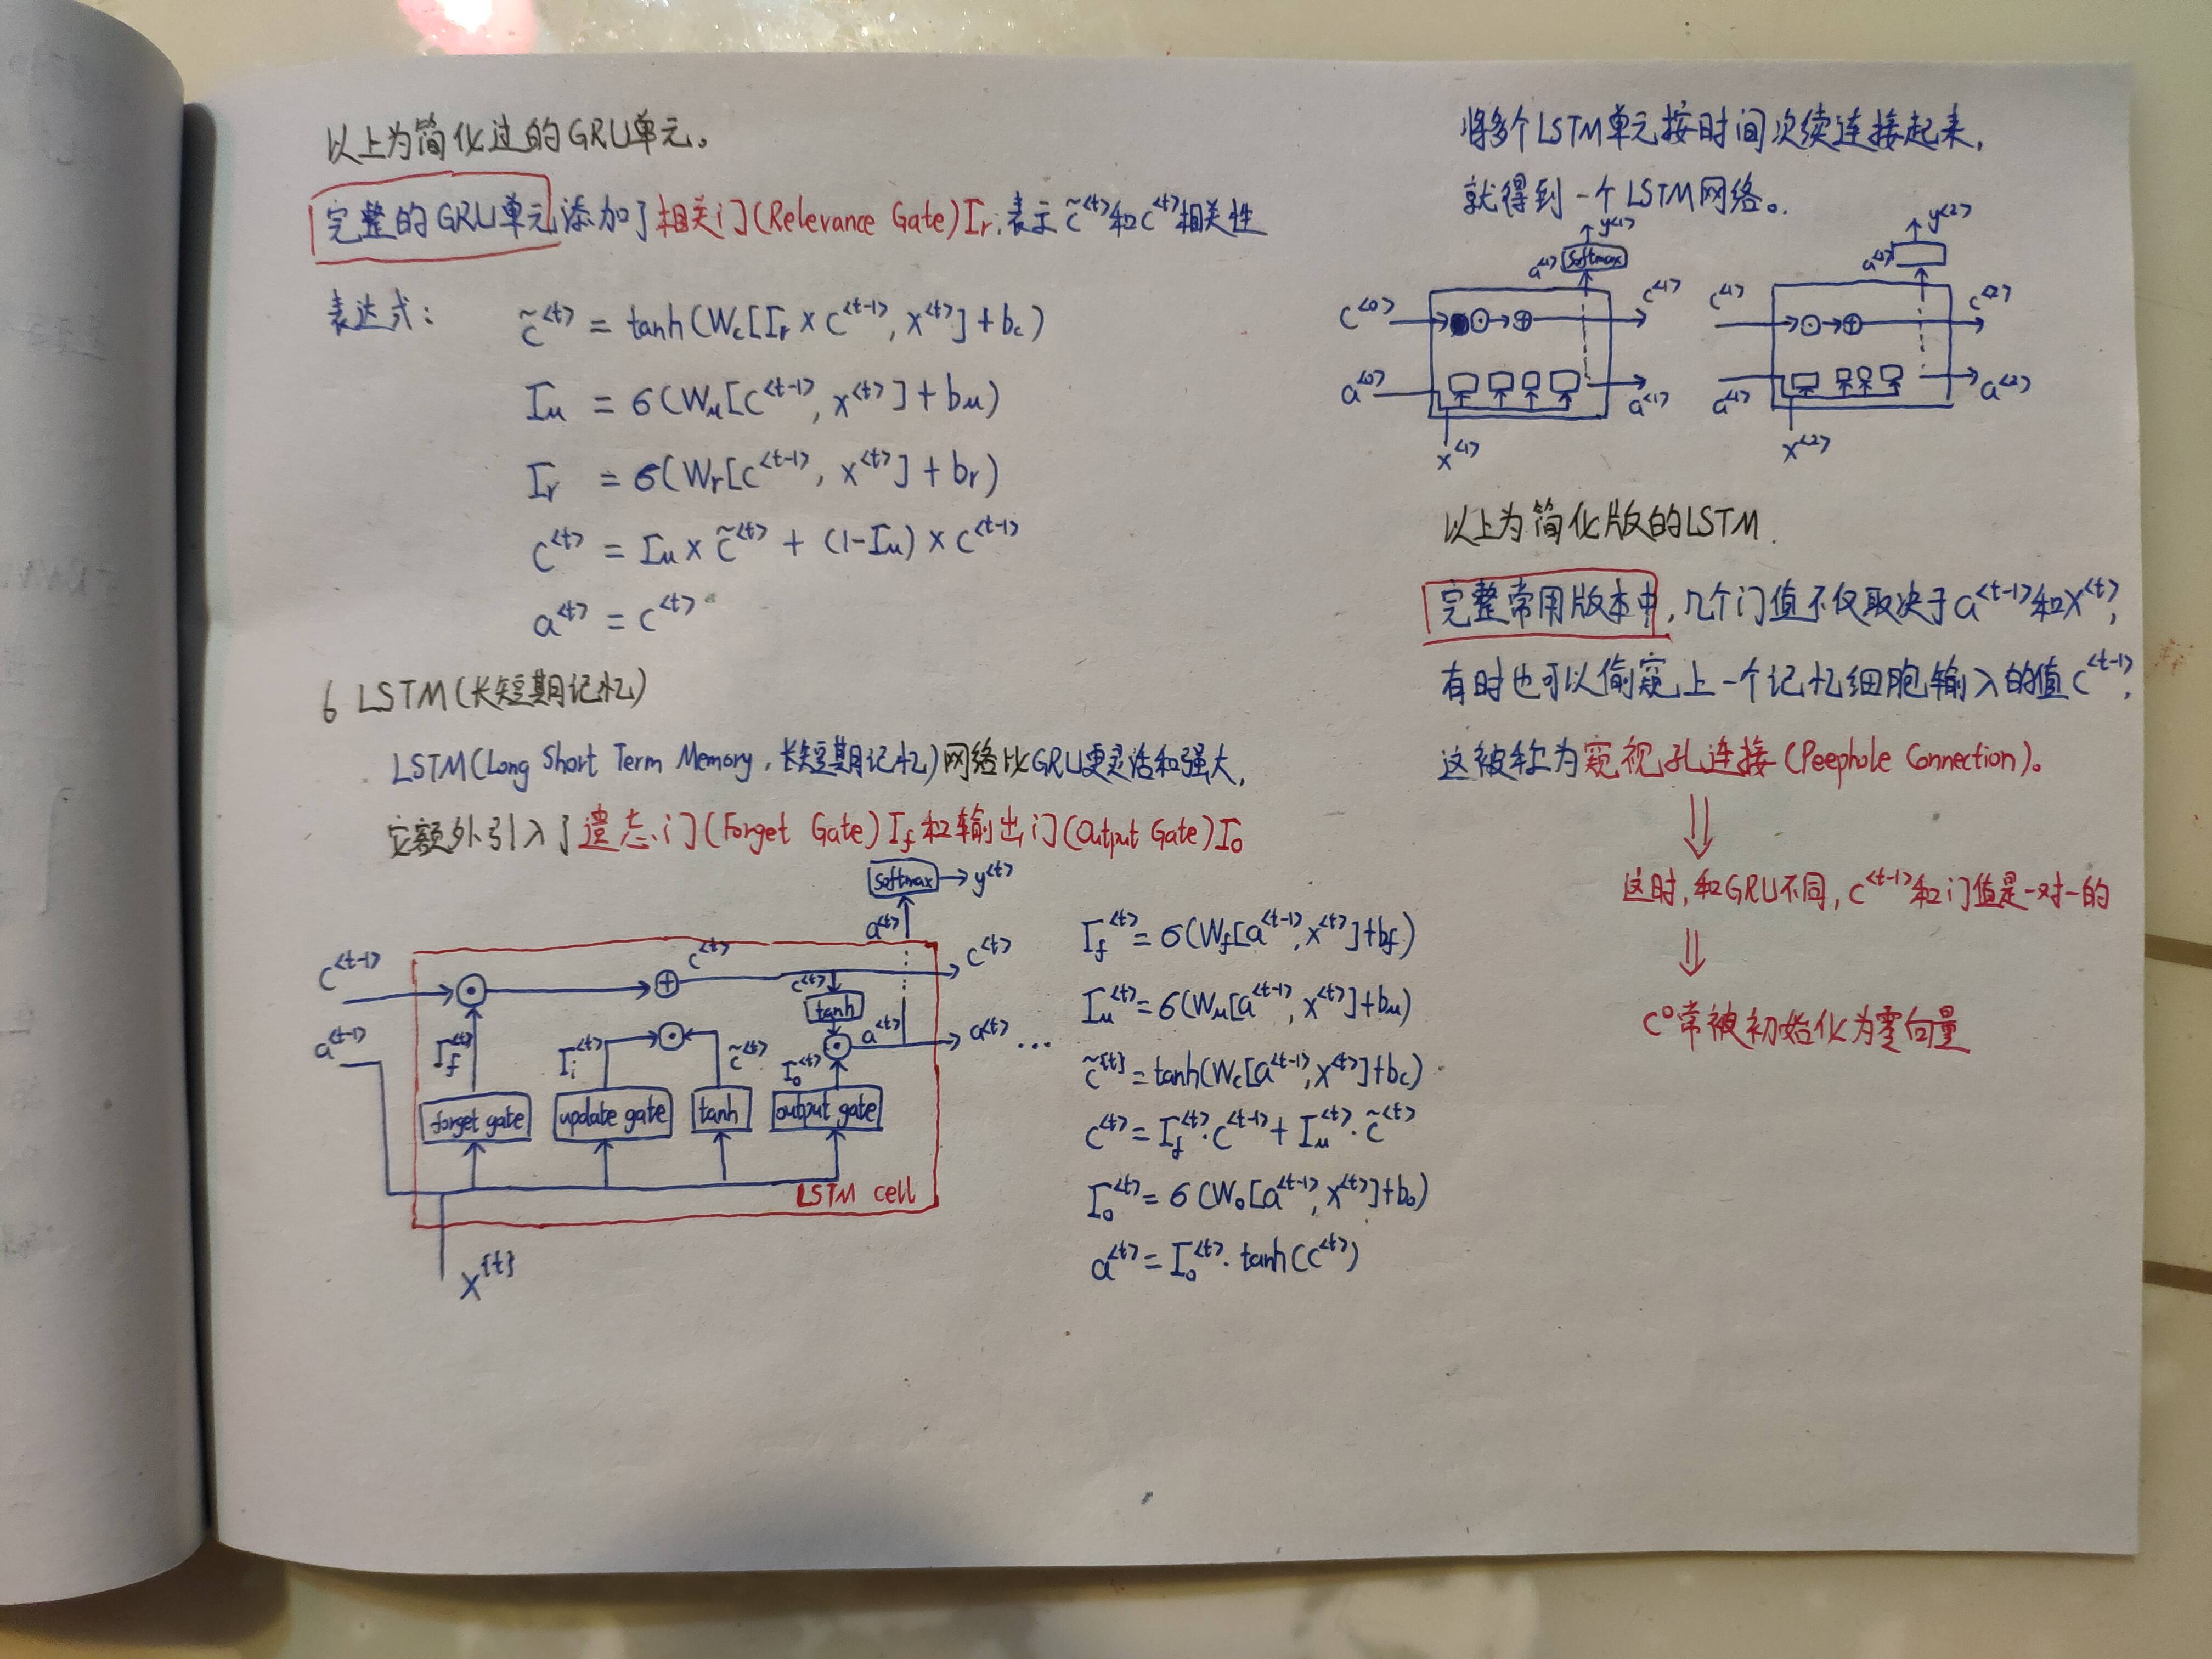 以上为简化过的GRU单元。
完整的GRU单元添加了相关门(Relevance Gate)Γr,表示c̃<t>和c<t>相关性
表达式：
c̃<t> = tanh(Wc[Γr × c<t-1>, x<t>] + bc)
Γu = σ(Wu[c<t-1>, x<t>] + bu)
Γr = σ(Wr[c<t-1>, x<t>] + br)
c<t> = Γu × c̃<t> + (1-Γu) × c<t-1>
a<t> = c<t>
6 LSTM(长短期记忆)
LSTM(Long Short Term Memory,长短期记忆)网络比GRU更灵活和强大,
它额外引入了遗忘门(Forget Gate)Γf和输出门(Output Gate)Γo
softmax → y<t>
a<t>
c<t-1>
c<t>
c<t>
c<t>
tanh
a<t-1>
Γf<t>
Γi<t>
c̃<t>
Γo<t>
a<t>
a<t> ...
forget gate
update gate
tanh
output gate
LSTM cell
x{t}
Γf<t> = σ(Wf[a<t-1>, x<t>]+bf)
Γu<t> = σ(Wu[a<t-1>, x<t>]+bu)
c̃{t} = tanh(Wc[a<t-1>, x<t>]+bc)
c<t> = Γf<t>·c<t-1> + Γu<t>·c̃<t>
Γo<t> = σ(Wo[a<t-1>, x<t>]+bo)
a<t> = Γo<t>·tanh(c<t>)
将多个LSTM单元按时间次续连接起来,
就得到一个LSTM网络。
y<1>
a<1>
softmax
c<0>
c<1>
a<0>
a<1>
x<1>
y<2>
c<1>
c<2>
a<1>
a<2>
x<2>
以上为简化版的LSTM.
完整常用版本中,几个门值不仅取决于a<t-1>和x<t>,
有时也可以偷窥上一个记忆细胞输入的值c<t-1>,
这被称为窥视孔连接(Peephole Connection)。
⇓
这时,和GRU不同,c<t-1>和门值是一对一的
⇓
c⁰常被初始化为零向量